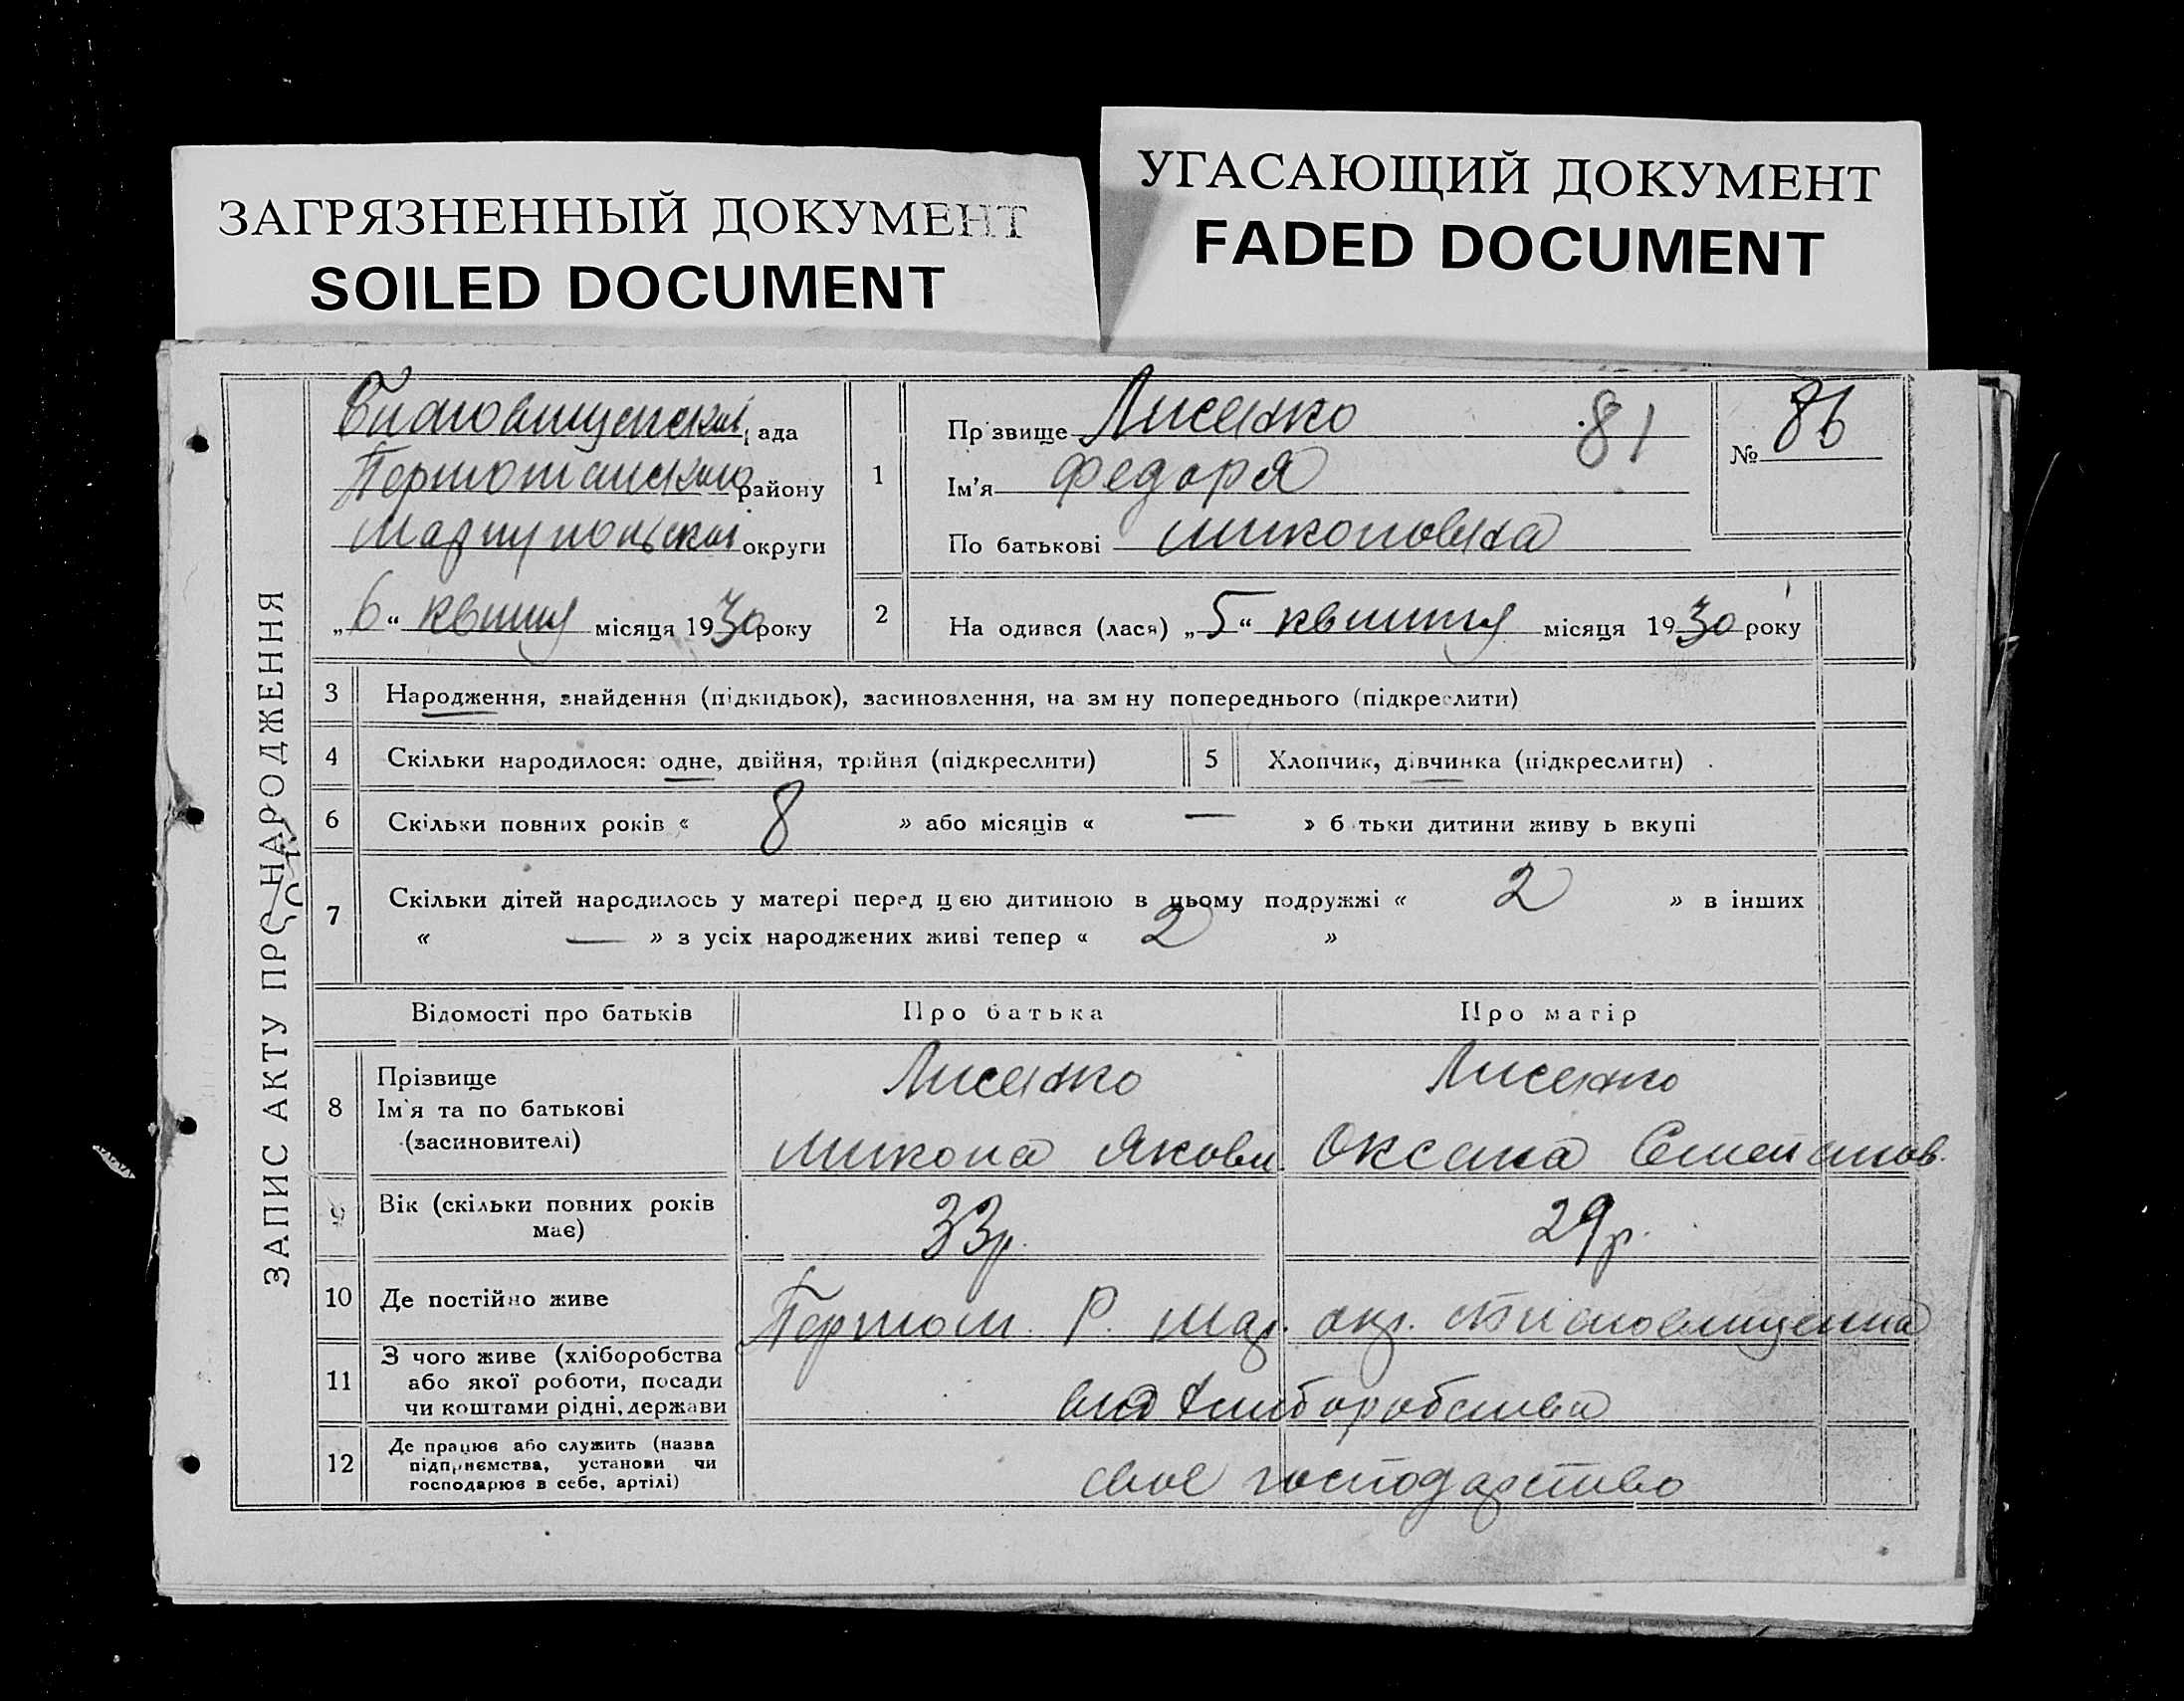 ЗАГРЯЗНЕННЫЙ ДОКУМЕНТ
SOILED DOCUMENT
УГАСАЮЩИЙ ДОКУМЕНТ
FADED DOCUMENT
ЗАПИС АКТУ ПРО НАРОДЖЕННЯ
ада
району
Маріупольської округи
„6“ квітня місяця 1930 року
1
Пр звище Лисенко 81
Ім'я Федора
По батькові Миколовна
№ 86
2 На одився (лася) „5“ квітня місяця 1930 року
3 Народження, знайдення (підкидьок), засиновлення, на зм ну попереднього (підкреслити)
4 Скільки народилося: одне, двійня, трійня (підкреслити) 5 Хлопчик, дівчинка (підкреслити)
6 Скільки повних років « 8 » або місяців « — » б тьки дитини живу ь вкупі
7 Скільки дітей народилось у матері перед цією дитиною в цьому подружжі « 2 » в інших
« — » з усіх народжених живі тепер « 2 »
Відомості про батьків Про батька Про матір
8 Прізвище
Ім'я та по батькові
(засиновителі)
Лисенко
Микола Якови
Лисенко
Оксана Степанов.
9 Вік (скільки повних років
має)
33р. 29р.
10 Де постійно живе
Р. Мар. окр.
11 З чого живе (хліборобства
або якої роботи, посади
чи коштами рідні, держави
від хліборобства
12 Де працює або служить (назва
підприємства, установи чи
господарює в себе, артілі)
своє господарство